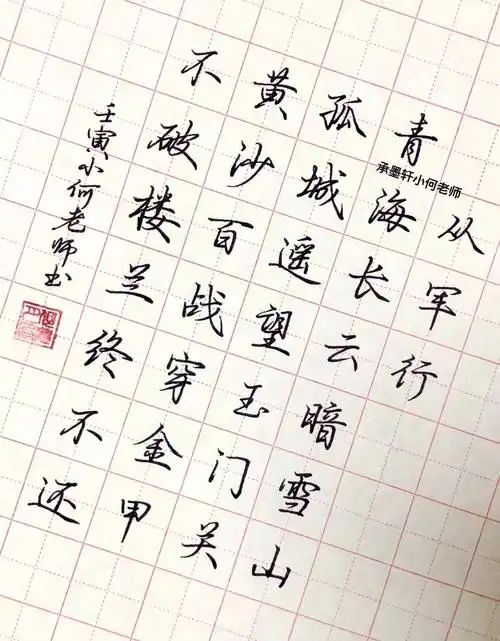 从军行
青海长云暗雪山
孤城遥望玉门关
黄沙百战穿金甲
不破楼兰终不还
壬寅小何老师书
承墨轩小何老师